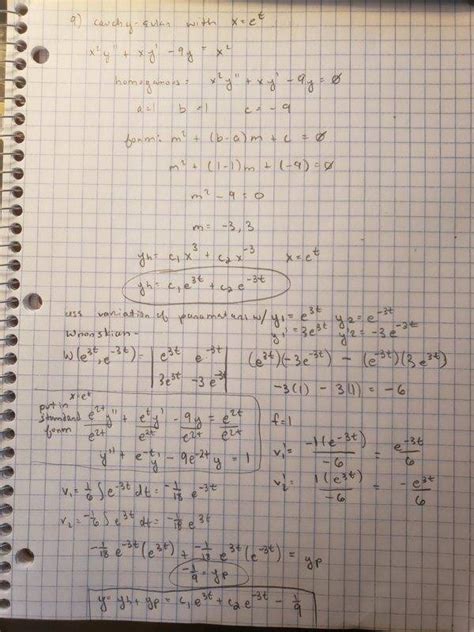 9) cauchy-euler with x=e^t
x²y" + xy' - 9y = x²
homogenous: x²y" + xy' - 9y = 0
a=1 b=1 c=-9
form: m² + (b-a)m + c = 0
m² + (1-1)m + (-9) = 0
m² - 9 = 0
m = -3, 3
yh = c₁x³ + c₂x⁻³ x=e^t
yh = c₁e^3t + c₂e^-3t
use variation of parameters w/ y₁ = e^3t y₂ = e^-3t
y₁' = 3e^3t y₂' = -3e^-3t
Wronskian -
W(e^3t, e^-3t) = | e^3t e^-3t | (e^3t)(-3e^-3t) - (e^-3t)(3e^3t)
| 3e^3t -3e^-3t |
-3(1) - 3(1) = -6
put in x=e^t
standard form e^2t/e^2t y" + e^t/e^2t y' - 9y/e^2t = e^2t/e^2t
f=1
y" + e^-t y' - 9e^-2t y = 1
v₁' = -1(e^-3t)/-6 = e^-3t/6
v₂' = 1(e^3t)/-6 = -e^3t/6
v₁ = 1/6 ∫ e^-3t dt = -1/18 e^-3t
v₂ = -1/6 ∫ e^3t dt = -1/18 e^3t
-1/18 e^-3t (e^3t) + -1/18 e^3t (e^-3t) = yp
-1/9 = yp
y = yh + yp = c₁e^3t + c₂e^-3t - 1/9